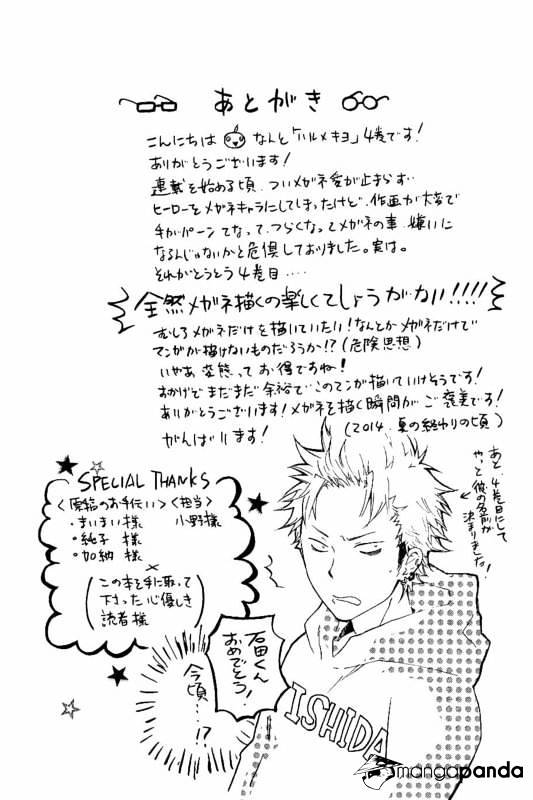 あとがき
こんにちは なんと「ハルメキヨ」4巻です!
ありがとうございます!
連載を始める頃、ついメガネ愛が止まらず…
ヒーローをメガネキャラにしてしまったけど、作画が大変で
手がパーンてなって、つらくなってメガネの事、嫌いに
なるんじゃないかと危惧しておりました。実は。
それがとうとう4巻目....
全然メガネ描くの楽しくてしょうがない!!!!
むしろメガネだけを描いていたい!なんとかメガネだけで
マンガが描けないものだろうか!?(危険思想)
いやあ変態ってお得ですね!
おかげでまだまだ余裕でこのマンガ描いていけそうです!
ありがとうございます!メガネを描く瞬間がご褒美です!
がんばります!
(2014.夏の終わりの頃)
あと、4巻目にして
やっと彼の名前が
決まりました!
SPECIAL THANKS
<原稿のお手伝い>
・まいまい様
・純子様
・加納様
<担当>
小野様
×
(この本を手に取って
下さった心優しき
読者様)
石田くん
おめでとう!
今頃…!?
ISHIDA
mangapanda